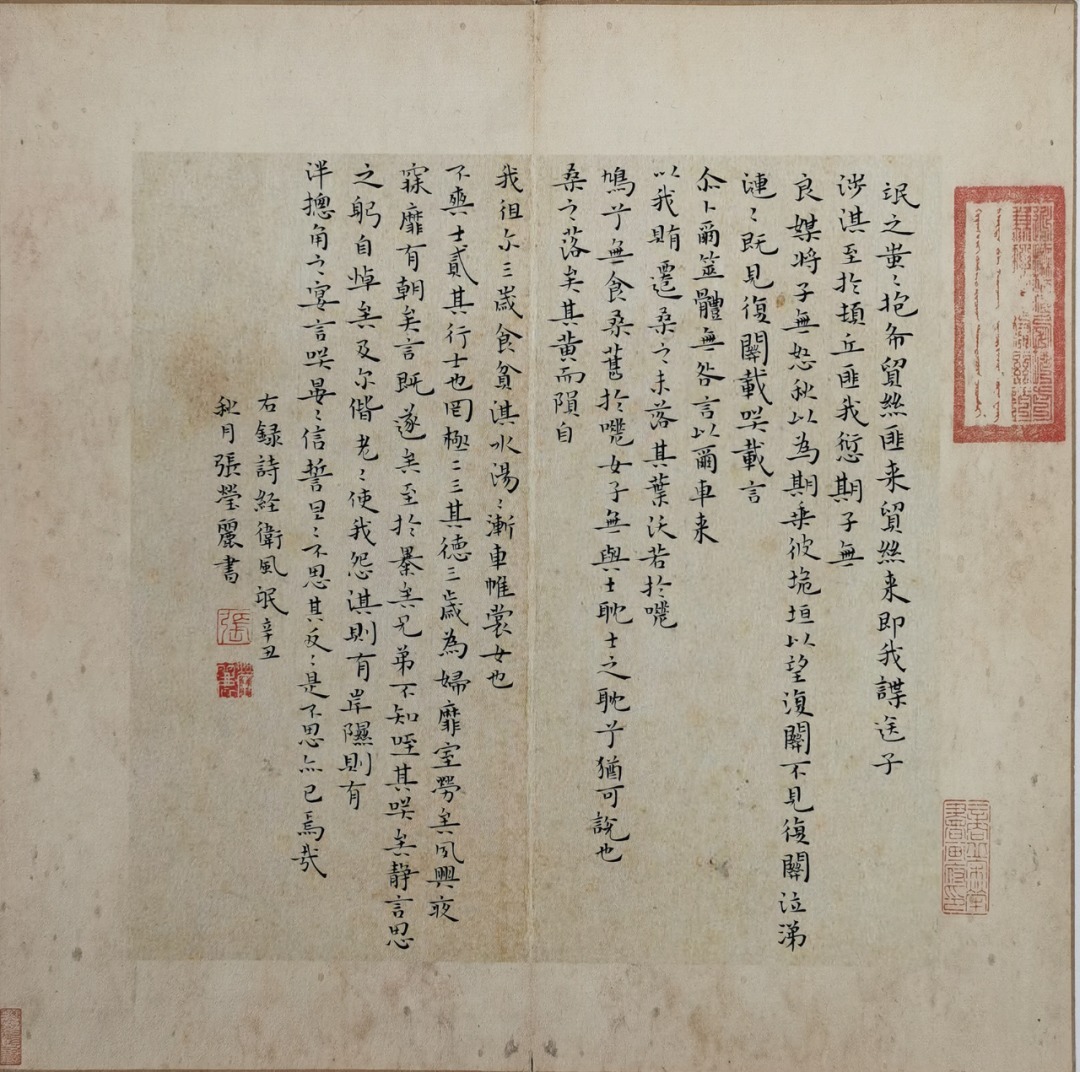 氓之蚩〻抱布貿絲匪来貿絲来即我謀送子
涉淇至於頓丘匪我愆期子無
良媒將子無怒秋以為期乗彼垝垣以望復關不見復關泣涕
漣〻既見復關載咲載言
尒卜爾筮體無咎言以爾車来
以我賄遷桑之未落其葉沃若於嗟
鳩兮無食桑葚於嗟女子無與士耽士之耽兮猶可說也
桑之落矣其黄而隕自
我徂尔三歲食貧淇水湯〻漸車帷裳女也
不爽士貳其行士也罔極二三其徳三歲為婦靡室勞矣夙興夜
寐靡有朝矣言既遂矣至於暴矣兄弟不知咥其咲矣静言思
之躬自悼矣及尔偕老〻使我怨淇則有岸隰則有
泮摠角之宴言咲晏〻信誓旦〻不思其反〻是不思亦已焉哉
右録詩経衛風氓辛丑
秋月張瑩麗書
張